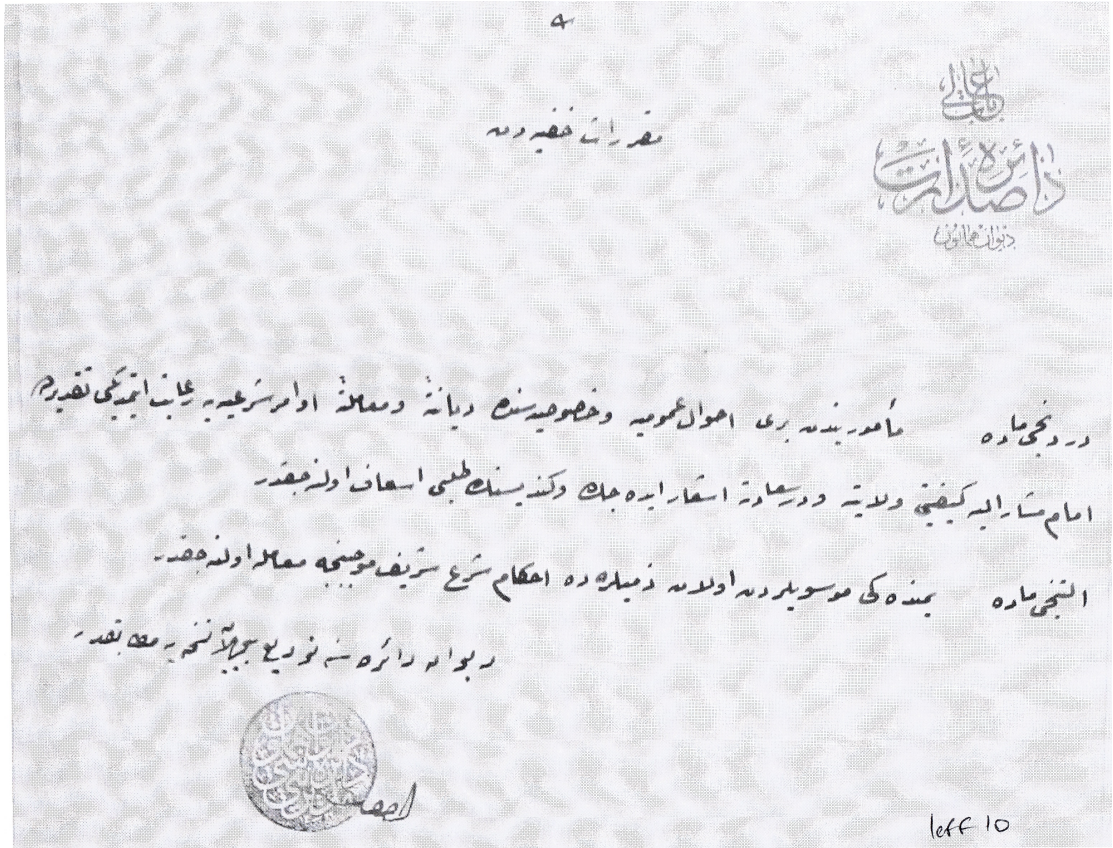 باب عالی
دائرهٔ صدارت
دیوان همایون
مقررات خفیه دن
دردنجی ماده مأموریندن بری احوال عمومیه و خصوصیه سنده دیانةً و معاملةً اوامر شرعیه یه رعایت ایتمدیکی تقدیرده
امام مشار الیه کیفیتی ولایته و درسعادته اشعار ایده جك و کندیسنك طلبی اسعاف اولنه جقدر
التنجی ماده یمنده کی موسویلردن اولان ذمیلره ده احکام شرع شریف موجبنجه معامله اولنه جقدر
دیوان دائره سنه تودیع
مطابقدر
leff 10